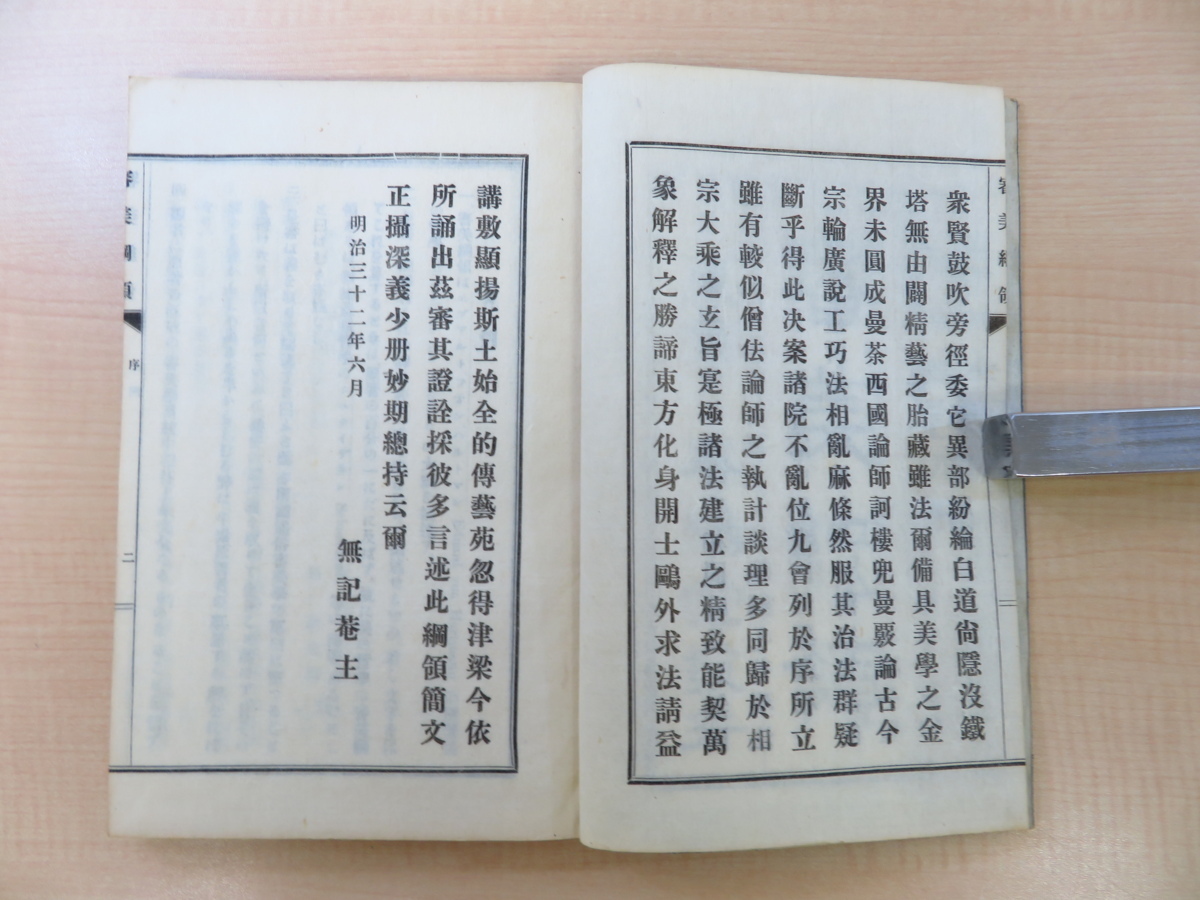 審美綱領
衆賢鼓吹旁徑委它異部紛綸白道尙隱沒鐵
塔無由闢精藝之胎藏雖法爾備具美學之金
界未圓成曼荼西國論師訶樓兜曼覈論古今
宗輪廣說工巧法相亂麻條然服其治法群疑
斷乎得此决案諸院不亂位九會列於序所立
雖有較似僧佉論師之執計談理多同歸於相
宗大乘之玄旨寔極諸法建立之精致能契萬
象解釋之勝諦東方化身開士鷗外求法請益
講敷顯揚斯土始全的傳藝苑忽得津梁今依
所誦出茲審其證詮採彼多言述此綱領簡文
正攝深義少册妙期總持云爾
明治三十二年六月
無記菴主
審美綱領
序
二